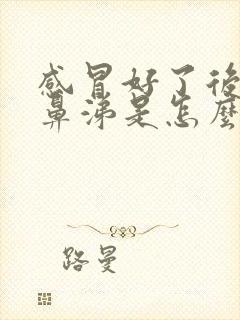 感冒好了後
鼻涕是怎麼
路曼